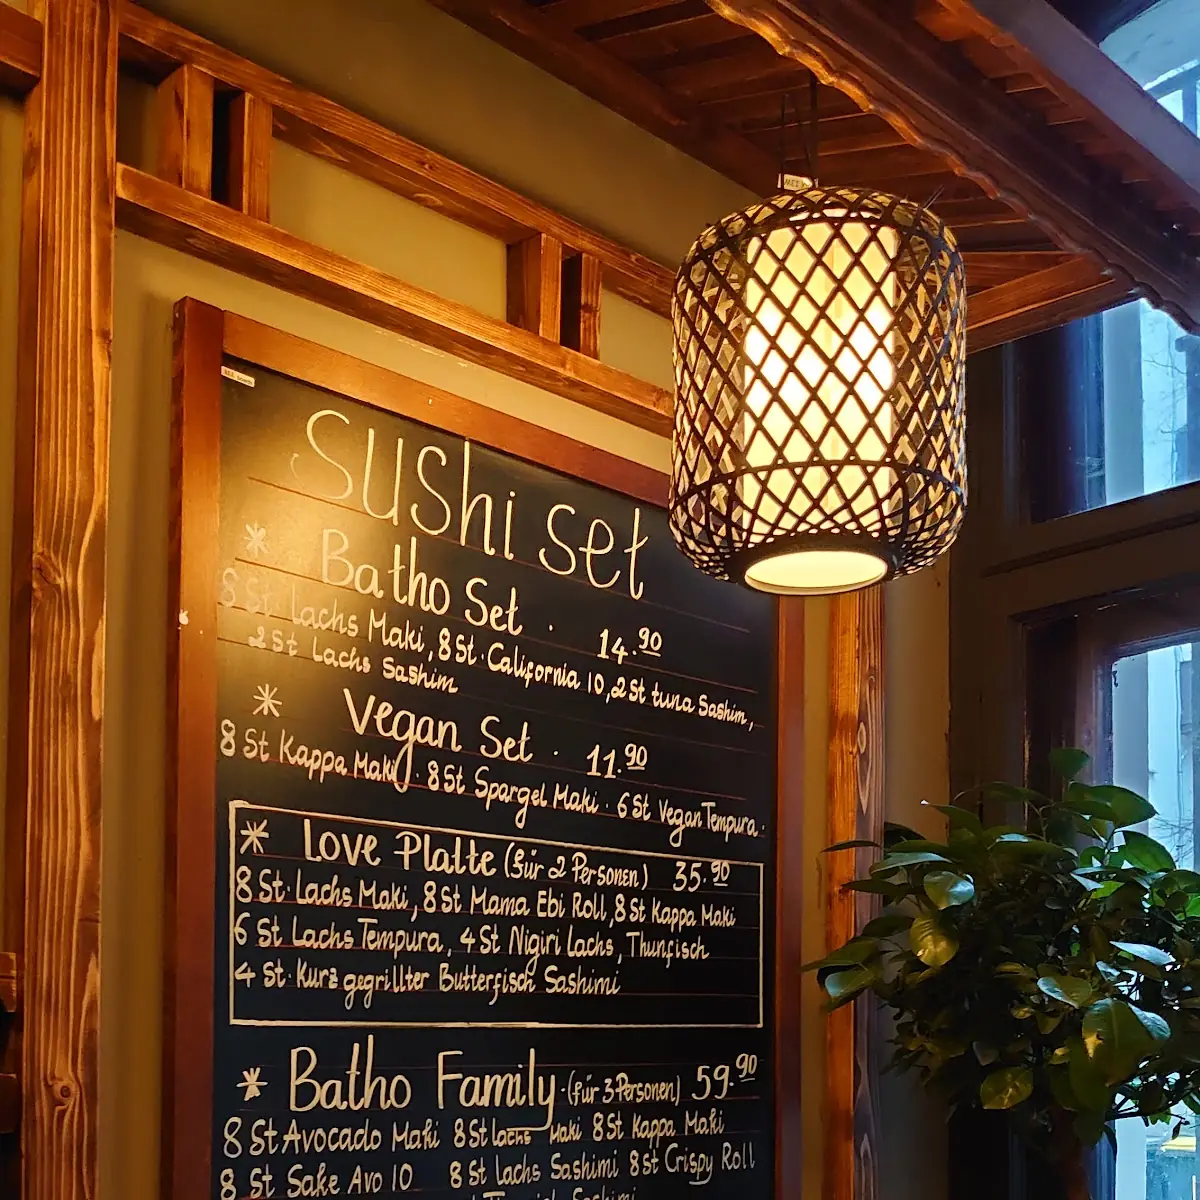 Sushi Set
* Batho Set . 14.90
8 St. Lachs Maki, 8 St. California 10, 2 St tuna Sashim,
2 St Lachs Sashim
* Vegan Set . 11.90
8 St Kappa Maki . 8 St Spargel Maki . 6 St Vegan Tempura.
* Love Platte (für 2 Personen) 35.90
8 St. Lachs Maki, 8 St Mama Ebi Roll, 8 St Kappa Maki
6 St Lachs Tempura, 4 St Nigiri Lachs, Thunfisch
4 St. Kurz gegrillter Butterfisch Sashimi
* Batho Family . (für 3 Personen) 59.90
8 St Avocado Maki 8 St lachs Maki 8 St Kappa Maki
8 St Sake Avo 10 8 St Lachs Sashimi 8 St Crispy Roll
Sashimi